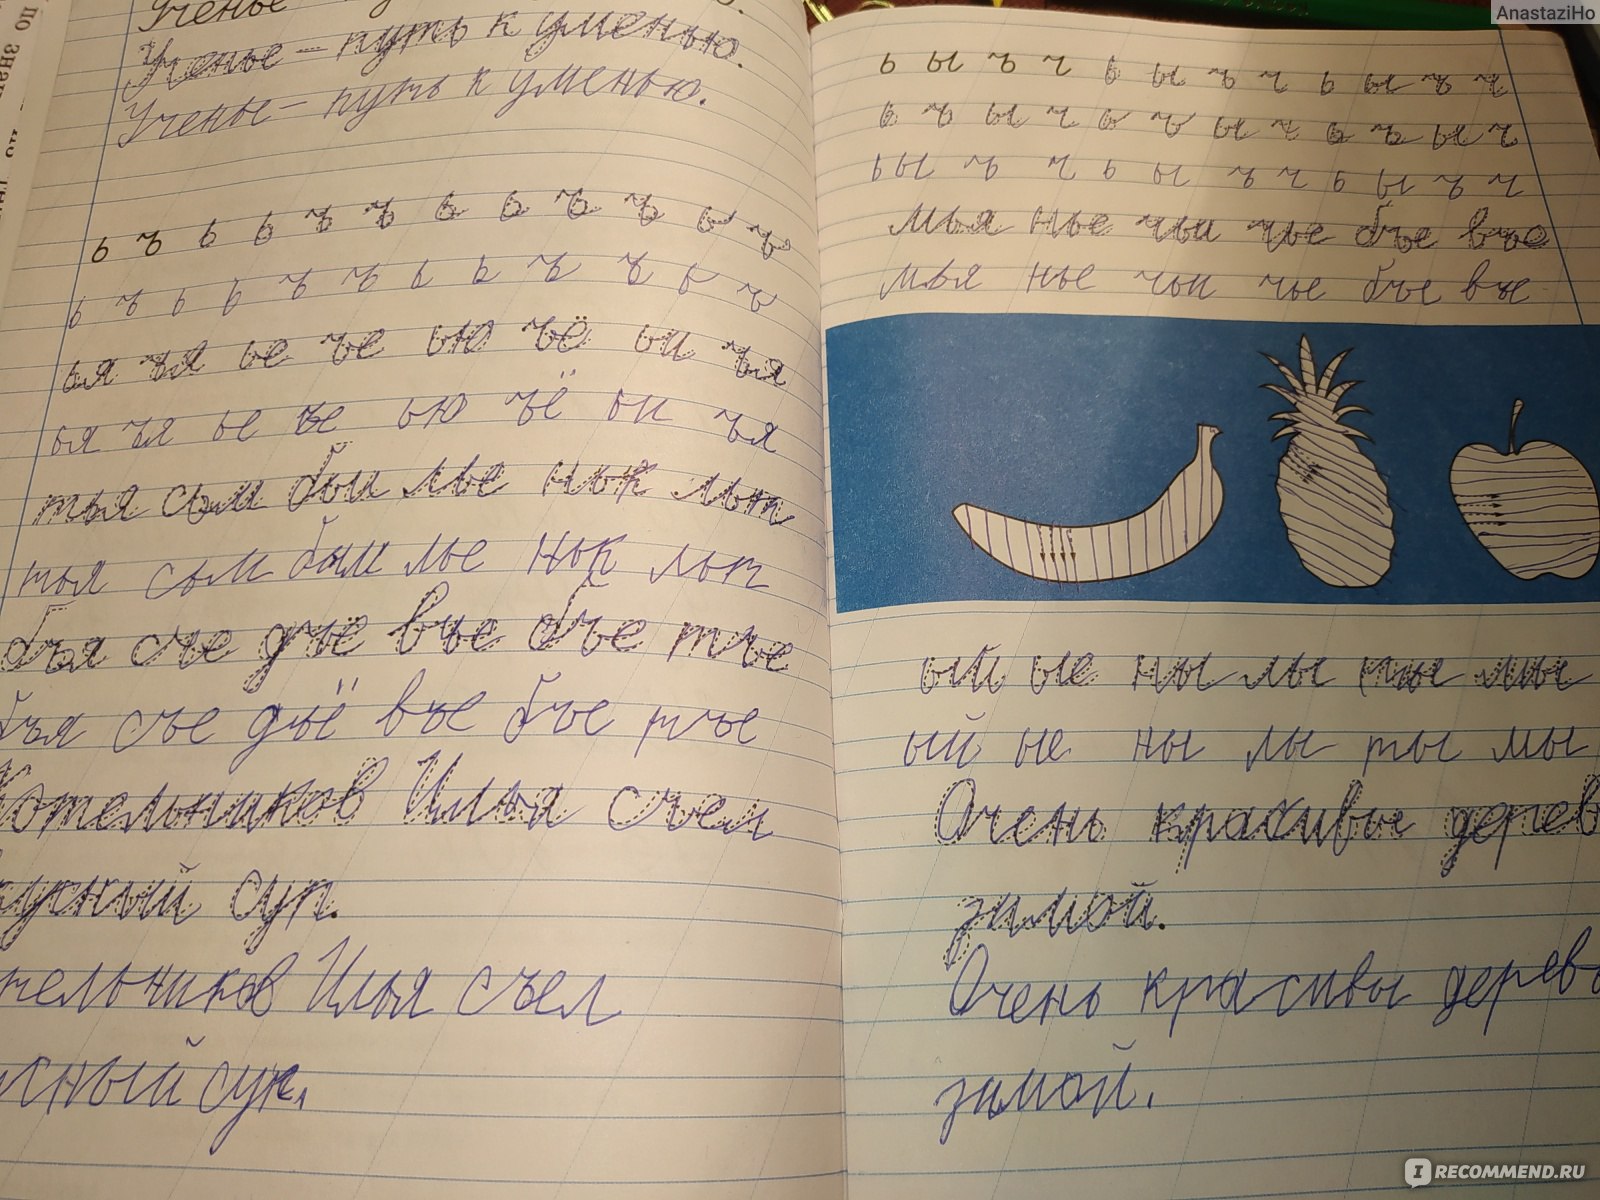 Ученье
Ученье – путь к уменью.
Ученье – путь к уменью.
ь ъ ь ь ъ ъ ь ь ъ ъ ь ъ
ь ъ ь ь ъ ъ ь ь ъ ъ ь ъ
ья ъя ье ъе ью ъё ьи ъя
ья ъя ье ъе ью ъё ьи ъя
тья сьи бьи лье ньк льт
тья сьи бьи лье ньк льт
бъя съе дъё въе бъе тъе
бъя съе дъё въе бъе тъе
Котельников Илья съел
вкусный суп.
тельников Илья съел
сный суп.
ь ы ъ ч ь ы ъ ч ь ы ъ ч
ь ъ ы ч ь ъ ы ч ь ъ ы ч
ь ы ъ ч ь ы ъ ч ь ы ъ ч
мья нье чьи чье бъе въе
мья нье чьи чье бъе въе
ый ые ны лы ты мы
ый ые ны лы ты мы
Очень красивые дерев
зимой.
Очень красивы дерев
зимой.
AnastaziHo
IRECOMMEND.RU